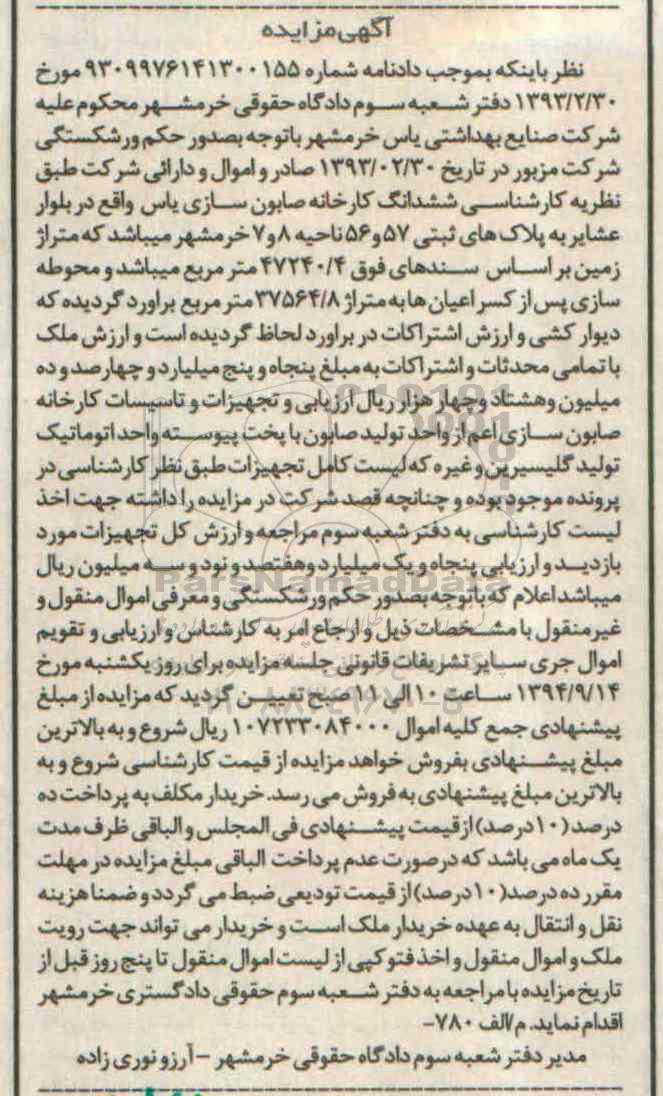 آگهی مزایده
نظر باینکه بموجب دادنامه شماره ۹۳۰۹۹۷۶۱۴۱۳۰۰۱۵۵ مورخ
۱۳۹۳/۲/۳۰ دفتر شعبه سوم دادگاه حقوقی خرمشهر محکوم علیه
شرکت صنایع بهداشتی یاس خرمشهر باتوجه بصدور حکم ورشکستگی
شرکت مزبور در تاریخ ۱۳۹۳/۰۲/۳۰ صادر و اموال و دارائی شرکت طبق
نظریه کارشناسی ششدانگ کارخانه صابون سازی یاس واقع در بلوار
عشایر به پلاک های ثبتی ۵۷ و ۵۶ ناحیه ۸ و ۷ خرمشهر میباشد که متراژ
زمین بر اساس سندهای فوق ۴۷۲۴۰/۴ متر مربع میباشد و محوطه
سازی پس از کسر اعیان ها به متراژ ۳۷۵۶۴/۸ متر مربع براورد گردیده که
دیوار کشی و ارزش اشتراکات در براورد لحاظ گردیده است و ارزش ملک
با تمامی محدثات و اشتراکات به مبلغ پنجاه و پنج میلیارد و چهارصد و ده
میلیون وهشتاد وچهار هزار ریال ارزیابی و تجهیزات و تاسیسات کارخانه
صابون سازی اعم از واحد تولید صابون با پخت پیوسته واحد اتوماتیک
تولید گلیسیرین و غیره که لیست کامل تجهیزات طبق نظر کارشناسی در
پرونده موجود بوده و چنانچه قصد شرکت در مزایده را داشته جهت اخذ
لیست کارشناسی به دفتر شعبه سوم مراجعه و ارزش کل تجهیزات مورد
بازدید و ارزیابی پنجاه و یک میلیارد وهفتصد و نود و سه میلیون ریال
میباشد اعلام که باتوجه بصدور حکم ورشکستگی و معرفی اموال منقول و
غیر منقول با مشخصات ذیل و ارجاع امر به کارشناس و ارزیابی و تقویم
اموال جری سایر تشریفات قانونی جلسه مزایده برای روز یکشنبه مورخ
۱۳۹۴/۹/۱۴ ساعت ۱۰ الی ۱۱ صبح تعیین گردید که مزایده از مبلغ
پیشنهادی جمع کلیه اموال ۱۰۷۲۳۳۰۸۴۰۰۰ ریال شروع و به بالاترین
مبلغ پیشنهادی بفروش خواهد مزایده از قیمت کارشناسی شروع و به
بالاترین مبلغ پیشنهادی به فروش می رسد. خریدار مکلف به پرداخت ده
درصد (۱۰درصد) از قیمت پیشنهادی فی المجلس و الباقی ظرف مدت
یک ماه می باشد که درصورت عدم پرداخت الباقی مبلغ مزایده در مهلت
مقرر ده درصد(۱۰درصد) از قیمت تودیعی ضبط می گردد و ضمنا هزینه
نقل و انتقال به عهده خریدار ملک است و خریدار می تواند جهت رویت
ملک و اموال منقول و اخذ فتوکپی از لیست اموال منقول تا پنج روز قبل از
تاریخ مزایده با مراجعه به دفتر شعبه سوم حقوقی دادگستری خرمشهر
اقدام نماید. م/الف ۷۸۰-
مدیر دفتر شعبه سوم دادگاه حقوقی خرمشهر - آرزو نوری زاده
ParsNamadData